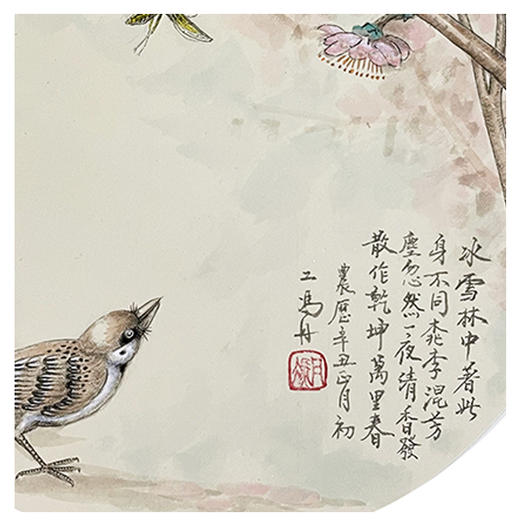 冰雪林中著此
身不同桃李混芳
塵忽然一夜清香發
散作乾坤萬里春
農曆辛丑正月初
工馮丹